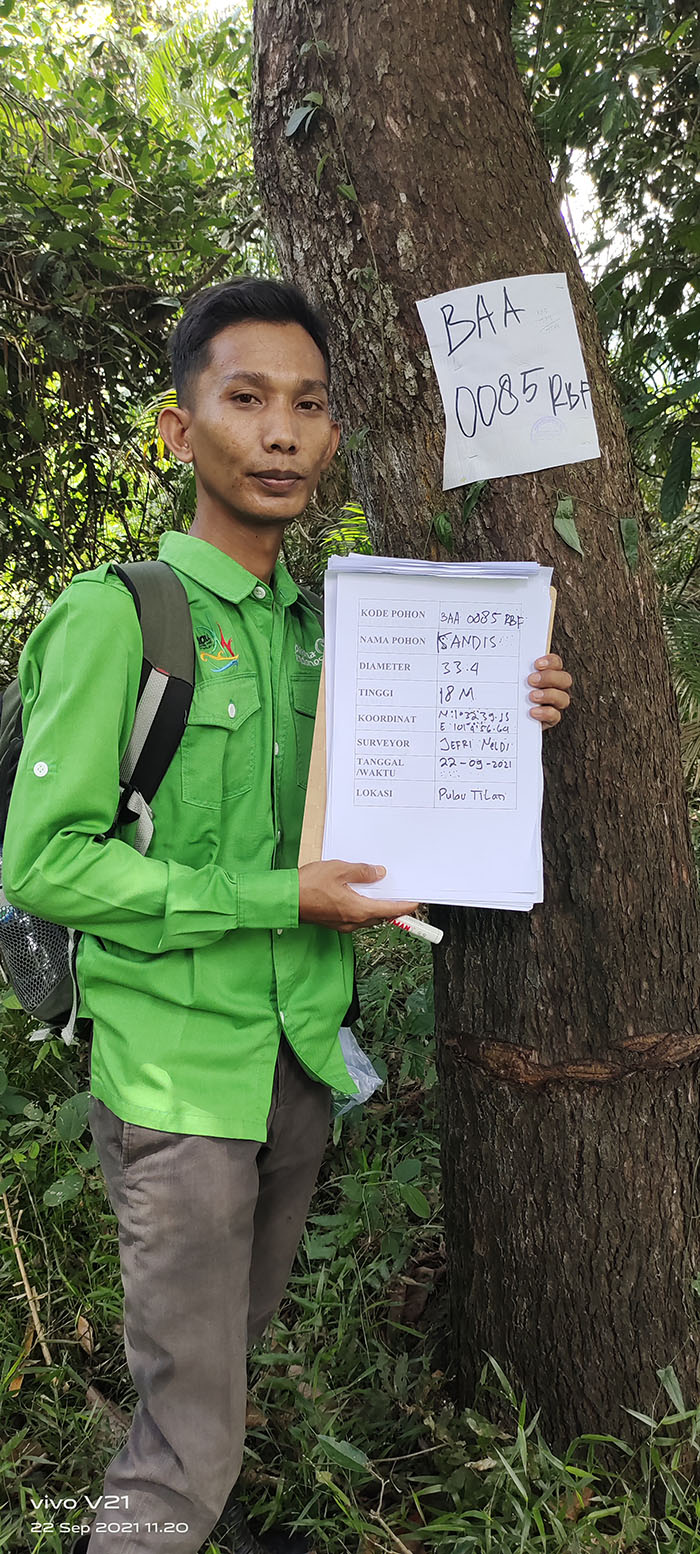 BAA
0085 RBF
KODE POHON BAA 0085 RBF
NAMA POHON SANDIS
DIAMETER 33.4
TINGGI 18 M
KOORDINAT
SURVEYOR JEFRI MELDI
TANGGAL 22-09-2021
/WAKTU
LOKASI Pulau Tilan
vivo V21
22 Sep 2021 11.20